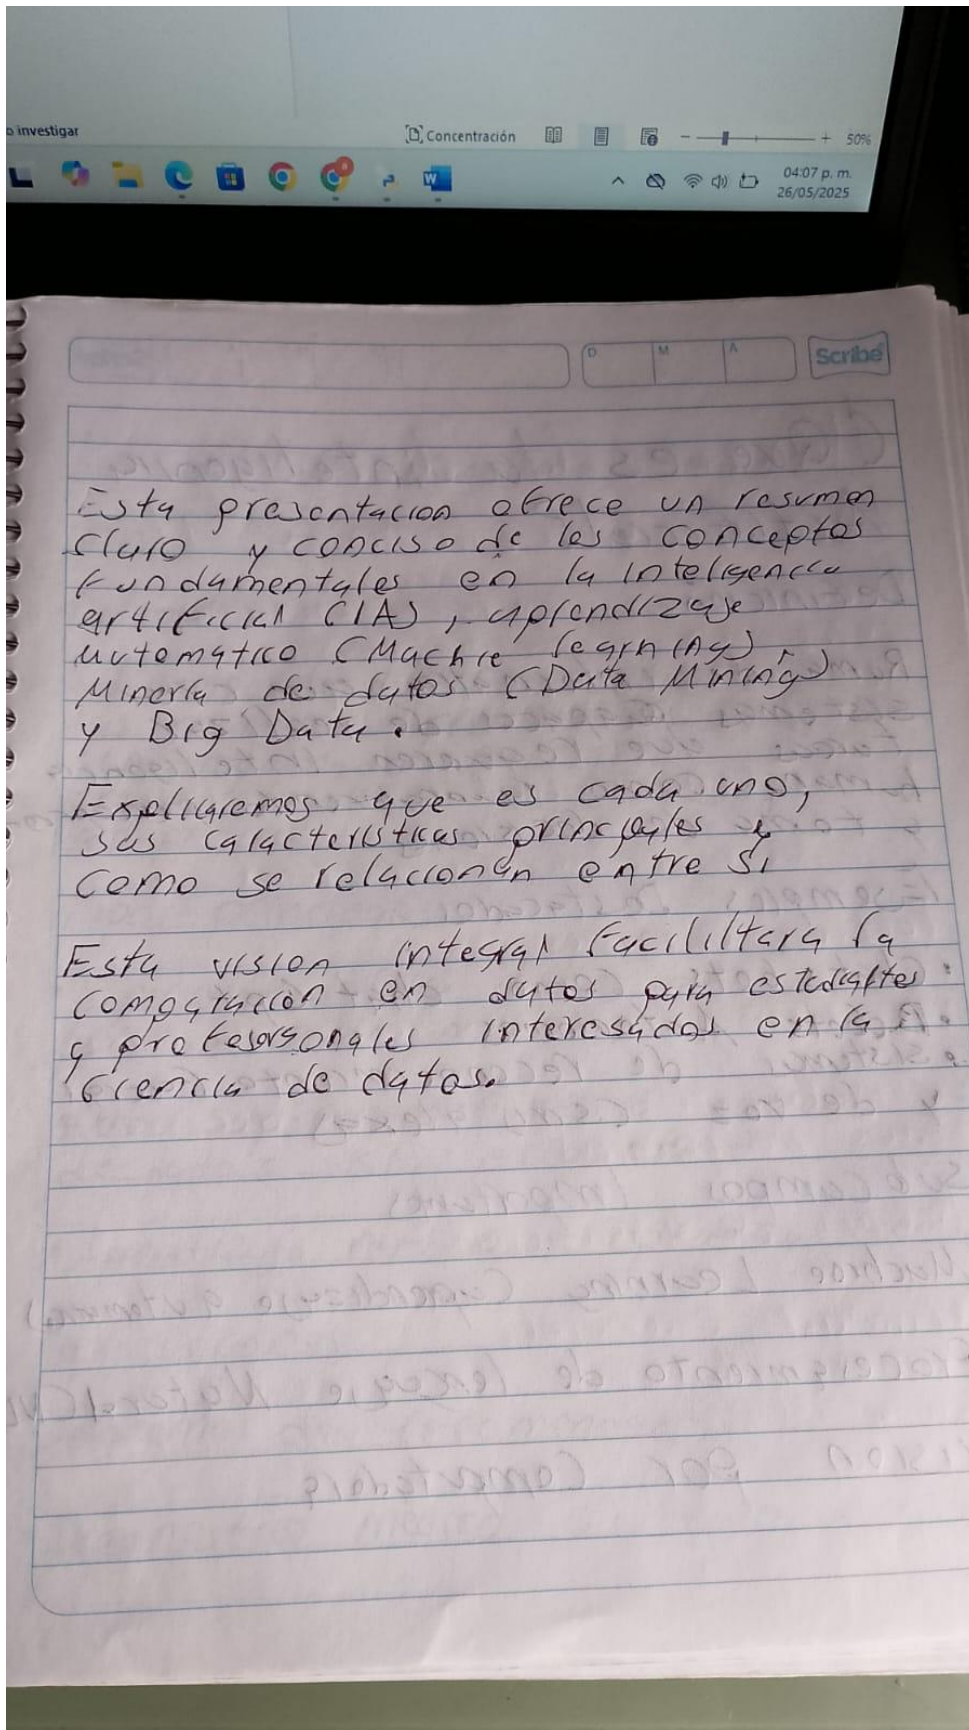 o investigar
Concentración
50%
04:07 p. m.
26/05/2025
D M A
Scribe
Esta presentacion ofrece un resumen
claro y conciso de los conceptos
fundamentales en la inteligencia
artificial (IA), aprendizaje
automatico (Machie learning),
Mineria de datos (Data Mining)
y Big Data.
Explicaremos que es cada uno,
sus caracteristicas principales y
como se relacionan entre si
Esta vision integral facililtara la
en datos para
interesados en la
ciencia de datos.